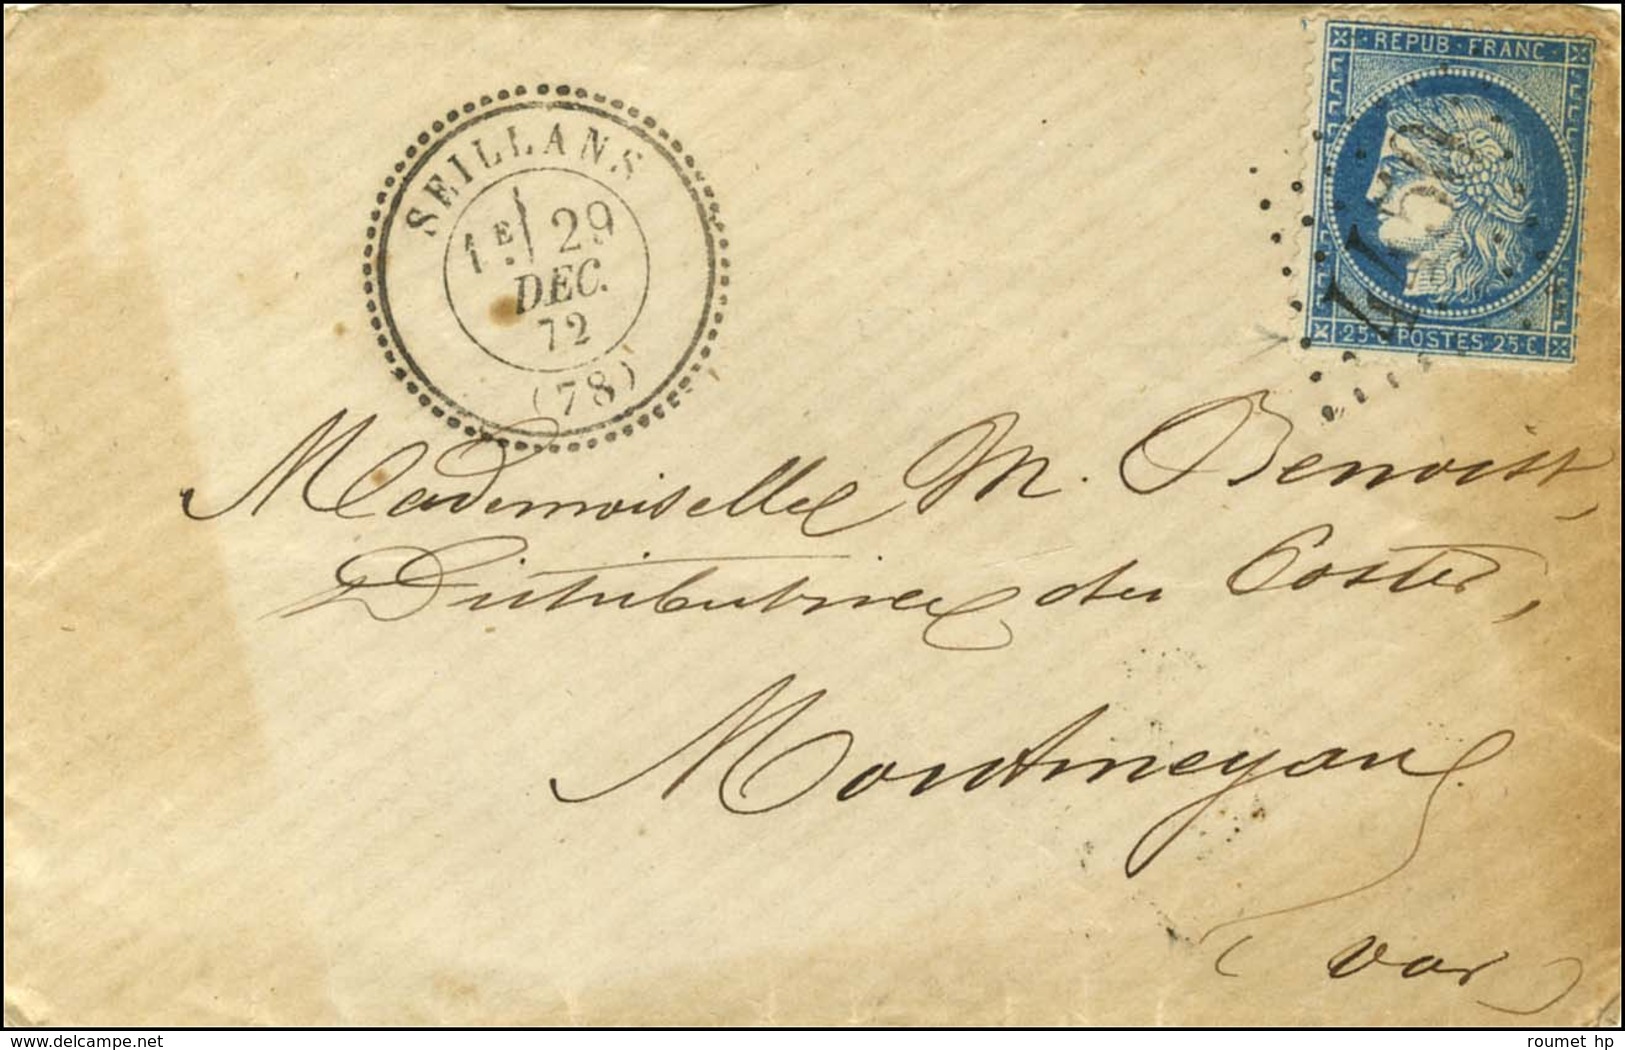 SEILLANS
1E 29
DEC.
72
(78)
REPUB · FRANC
25 C POSTES 25 C
Mademoiselle M. Benoist,
Distributrice des Postes,
Montmeyan
(Var)
delcampe.net
roumet hp